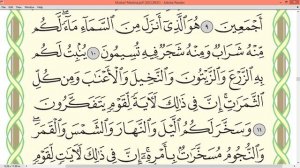 أَجْمَعِينَ ٩ هُوَ ٱلَّذِىٓ أَنزَلَ مِنَ ٱلسَّمَآءِ مَآءً ۖ لَّكُم
مِّنْهُ شَرَابٌ وَمِنْهُ شَجَرٌ فِيهِ تُسِيمُونَ ١٠ يُنۢبِتُ لَكُم
بِهِ ٱلزَّرْعَ وَٱلزَّيْتُونَ وَٱلنَّخِيلَ وَٱلْأَعْنَٰبَ وَمِن كُلِّ
ٱلثَّمَرَٰتِ ۗ إِنَّ فِى ذَٰلِكَ لَءَايَةً لِّقَوْمٍ يَتَفَكَّرُونَ ١١
وَسَخَّرَ لَكُمُ ٱلَّيْلَ وَٱلنَّهَارَ وَٱلشَّمْسَ وَٱلْقَمَرَ ۖ
وَٱلنُّجُومُ مُسَخَّرَٰتٌۢ بِأَمْرِهِۦٓ ۗ إِنَّ فِى ذَٰلِكَ لَءَايَٰتٍ لِّقَوْمٍ